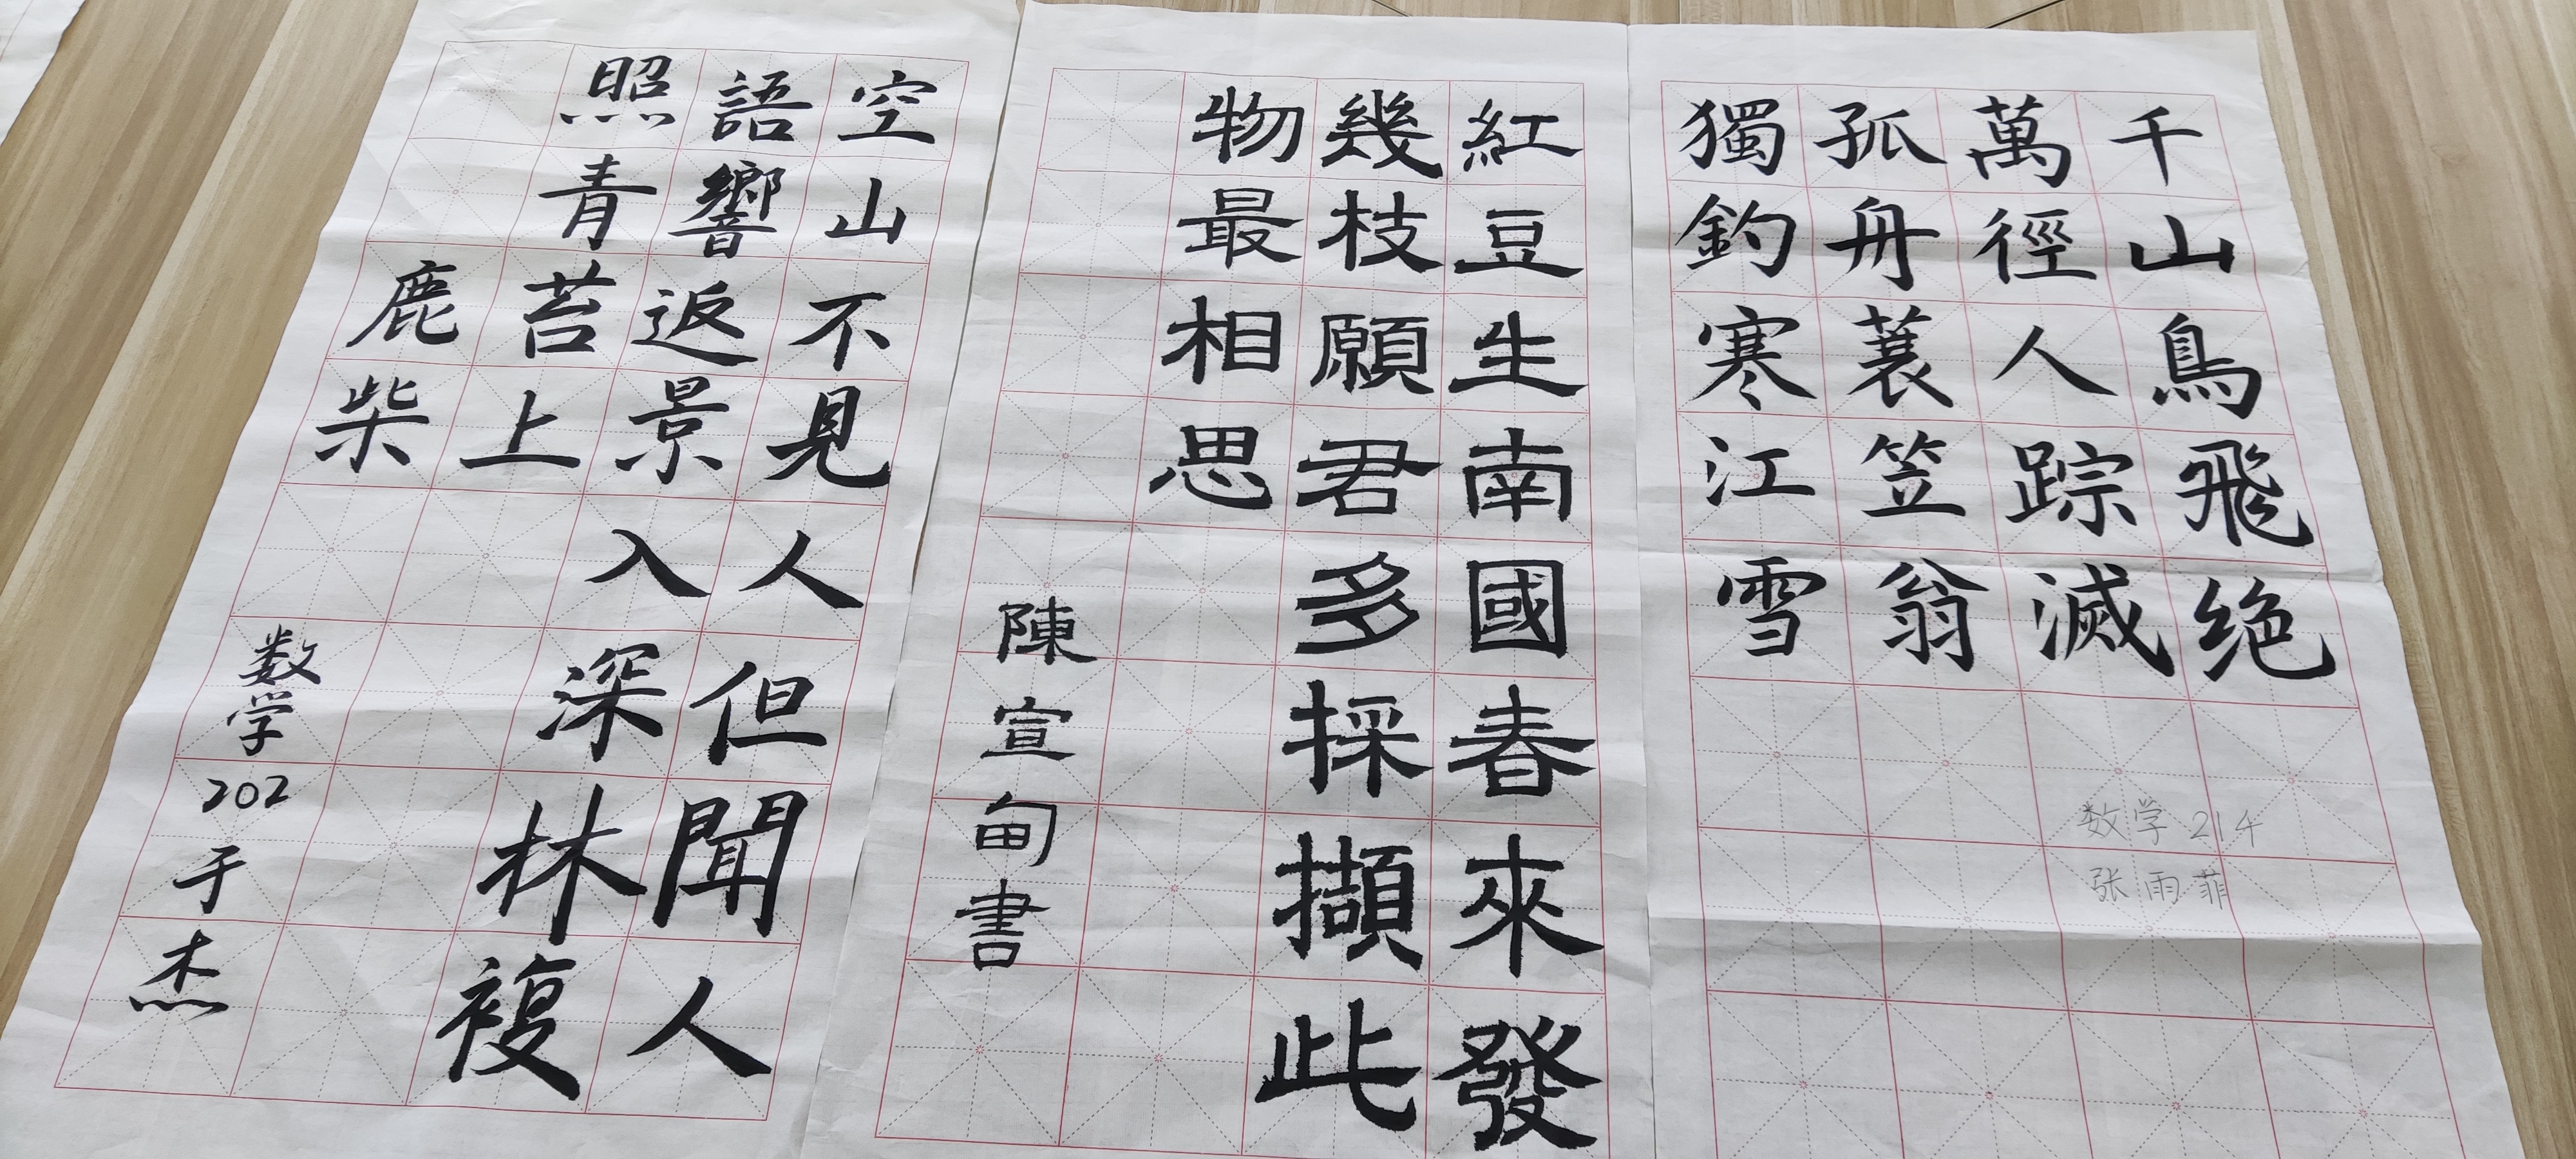 千山鳥飛绝
萬徑人踪滅
孤舟蓑笠翁
獨釣寒江雪
数学214
张雨菲
紅豆生南國春來發
幾枝願君多採擷此
物最相思
陳宣甸書
空山不見人但聞人
語響返景入深林複
照青苔上
鹿柴
数学202于杰